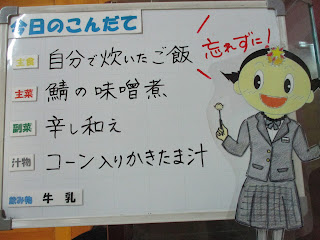 今日のこんだて
忘れずに!
主食 自分で炊いたご飯
主菜 鯖の味噌煮
副菜 辛し和え
汁物 コーン入りかきたま汁
飲み物 牛乳